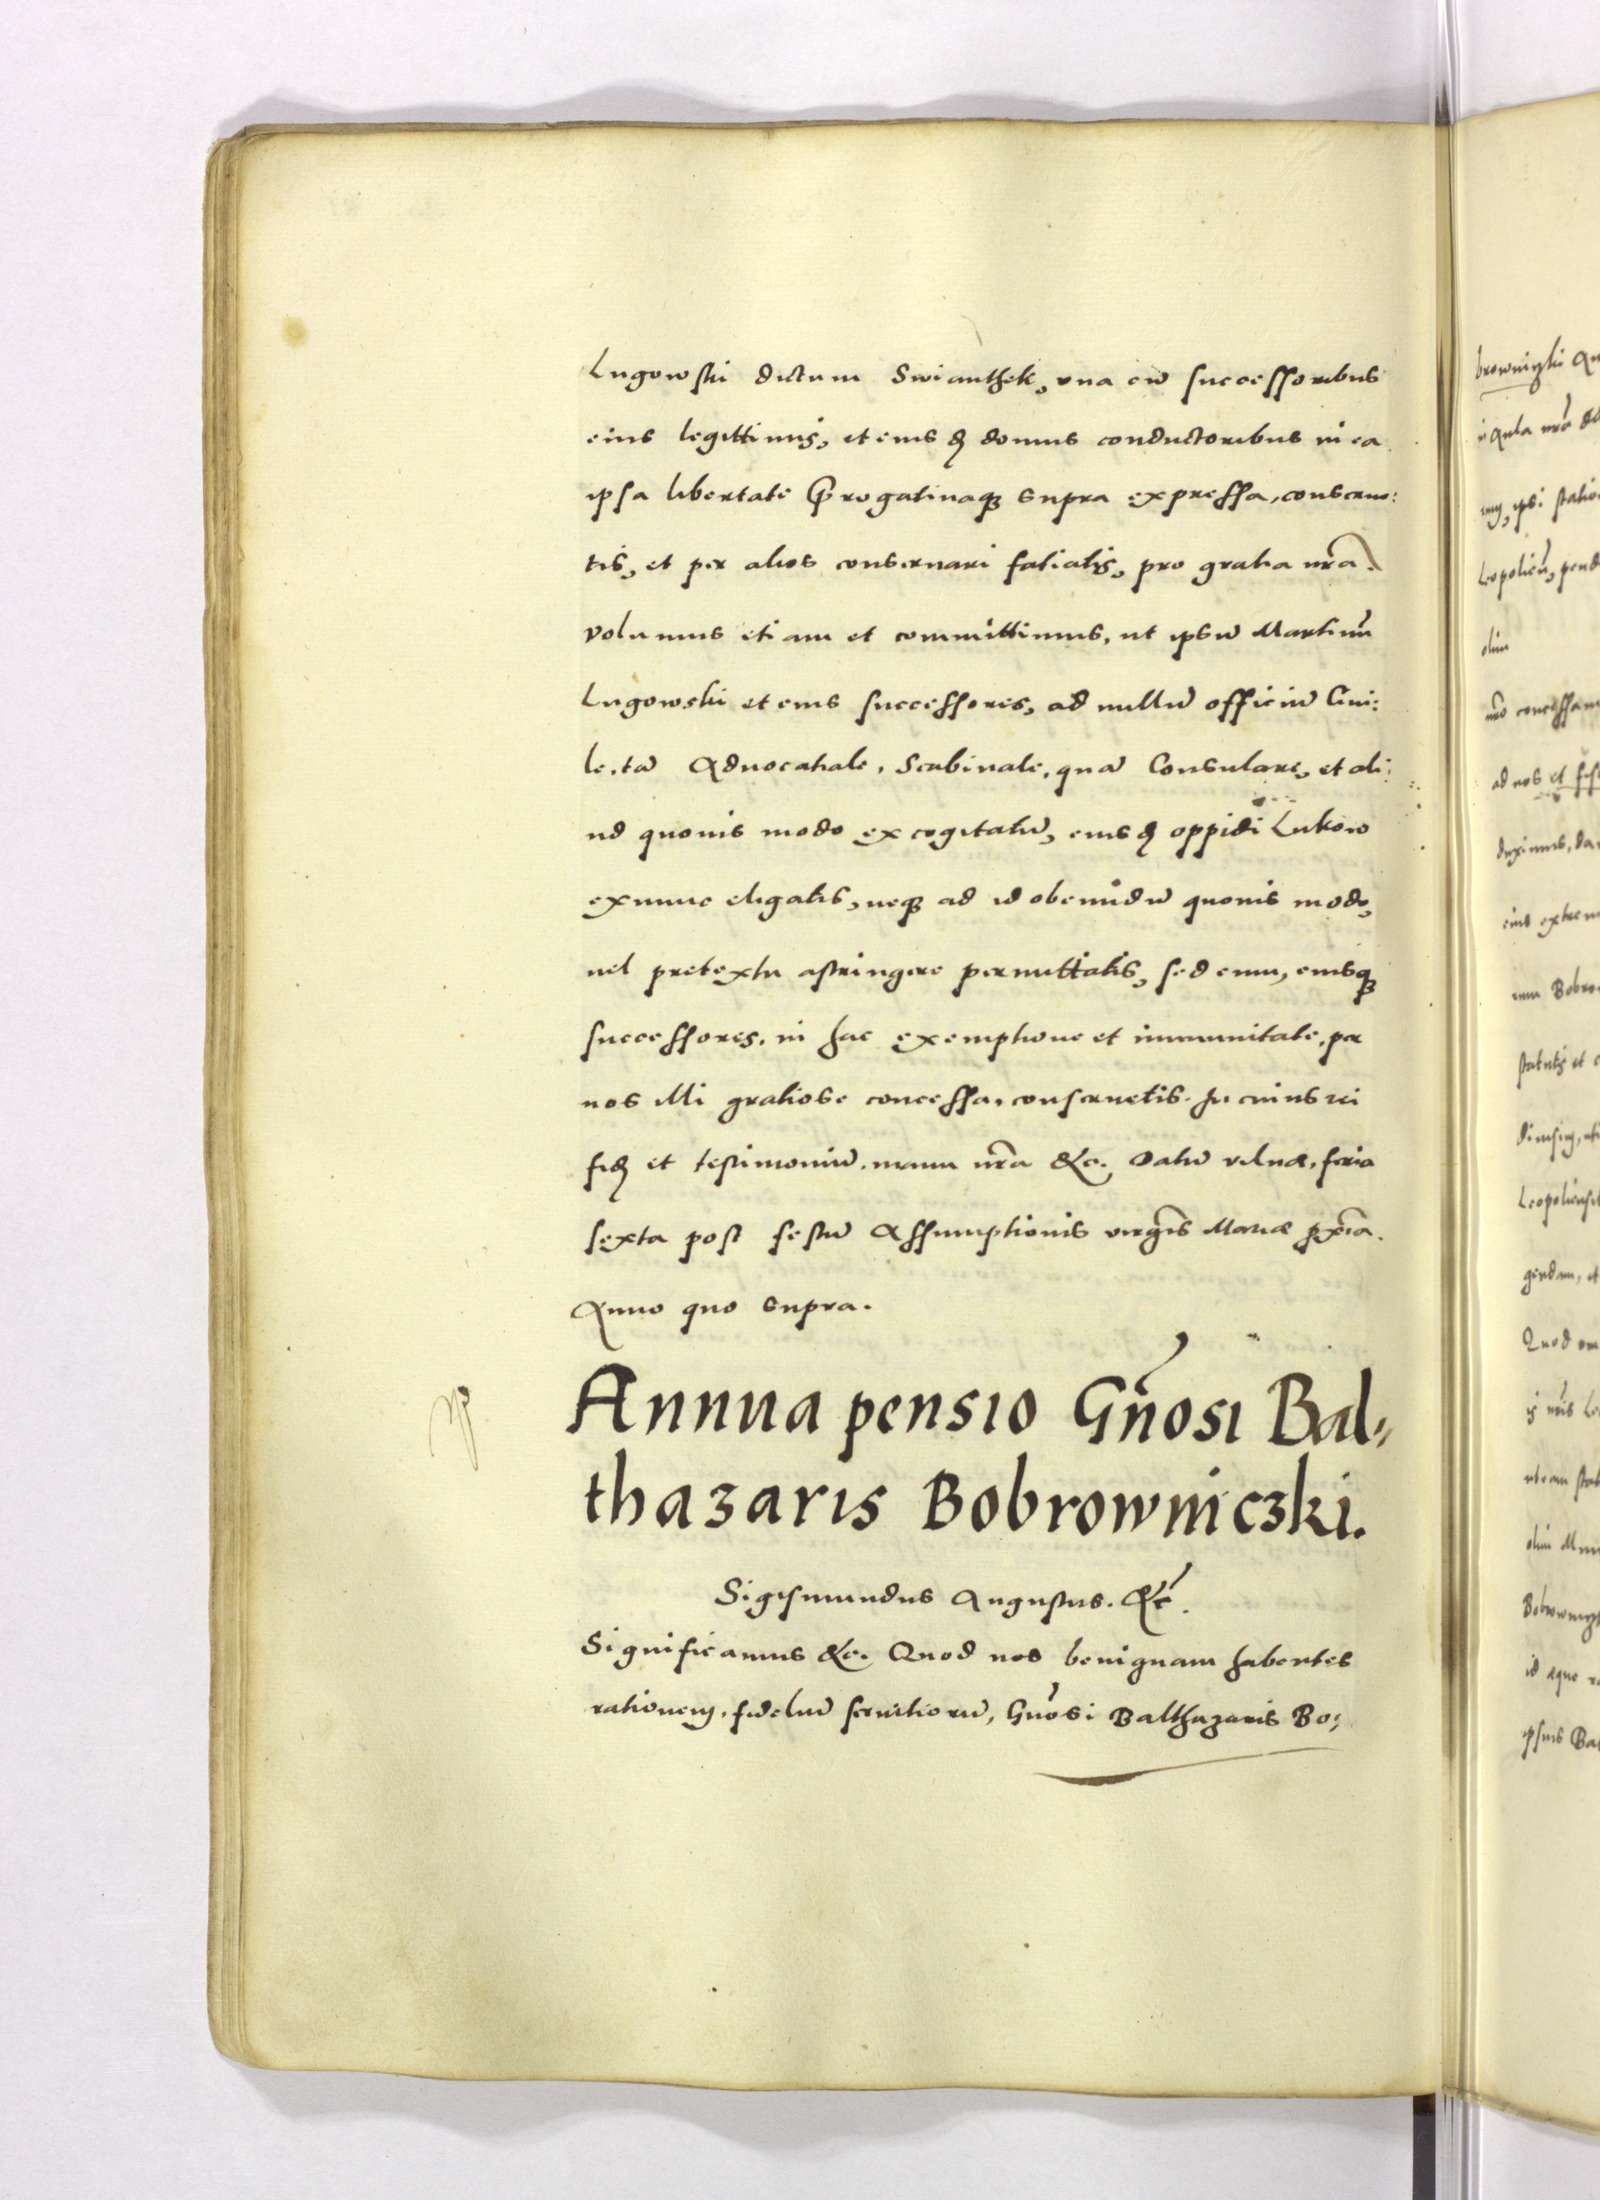 Lugowski dictum Swianthek, una cũ successoribus
eius legittimis, et eiusdẽ domus conductoribus in ea
ipsa libertate prerogatiuaq̃ supra expressa, conserue:
tis, et per alios conseruari faciatis, pro gratia nr̃a.
volumus etiam et committimus, ut ipsũ Martinũ
Lugowski et eius successores, ad nullũ officiũ Ciui:
le, tã Aduocatiale, Scabinale, quã Consulare, et ali:
ud quouis modo excogitatũ, eiusdẽ oppidi Lukow
exnunc eligatis, neq̃ ad id obeundũ quouis modo,
uel pretextu astringere permittatis, sed eum, eiusq̃
successores, in hac exemptione et immunitate, per
nos illi gratiose concessa, conseruetis. In cuius rei
fidẽ et testimoniũ, manu nr̃a &c. Datũ vilnæ, feria
sexta post festũ Assumptionis virgĩs Mariæ pxĩa.
Anno quo supra.
Annua pensio Gñosi Bal„
thazaris Bobrowniczki.
Sigismundus Augustus. &c̃.
Significamus &c. Quod nos benignam habentes
rationem, fideliũ seruitiorũ, Gñosi Balthazaris Bo:
browniczki
in Aula nr̃a
ipsi
olim
ad nos et
eius
Bobro
Quod
olim
id æque
ipsius Ba